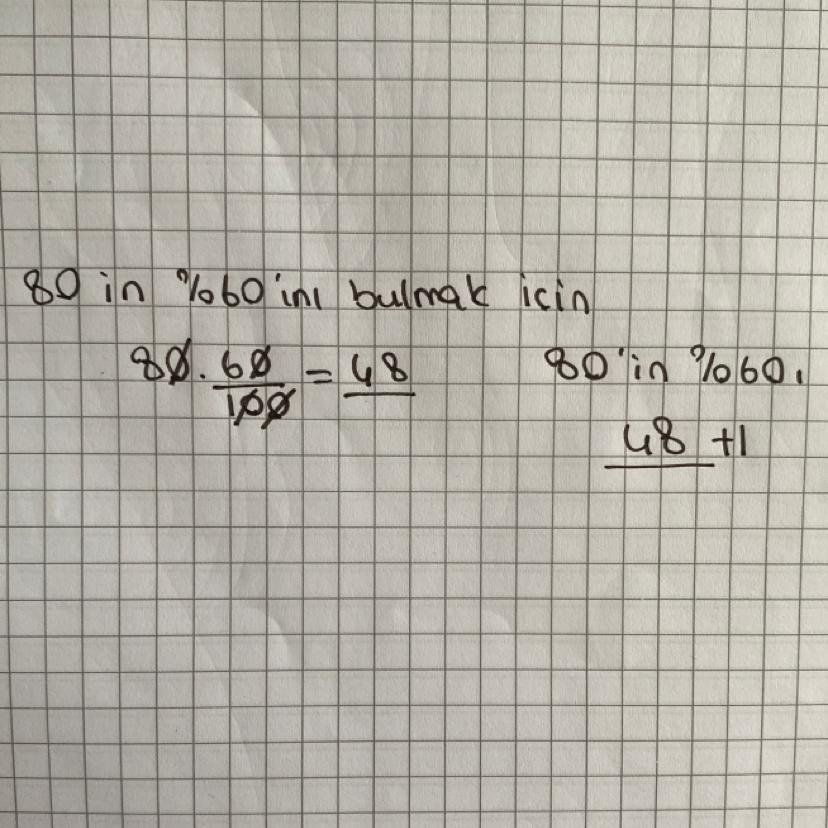 80 in %60'ını bulmak icin
80 . 60/100 = 48
80'in %60ı
48 +1